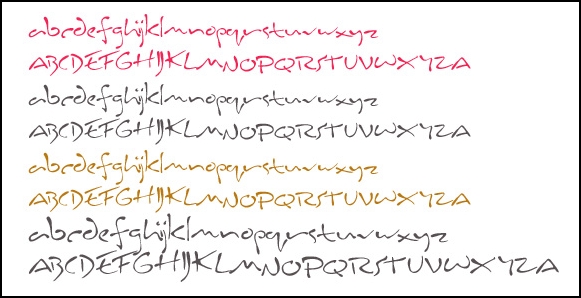 abcdefghijklmnopqrstuvwxyz
ABCDEFGHIJKLMNOPQRSTUVWXYZA
abcdefghijklmnopqrstuvwxyz
ABCDEFGHIJKLMNOPQRSTUVWXYZA
abcdefghijklmnopqrstuvwxyz
ABCDEFGHIJKLMNOPQRSTUVWXYZA
abcdefghijklmnopqrstuvwxyz
ABCDEFGHIJKLMNOPQRSTUVWXYZA